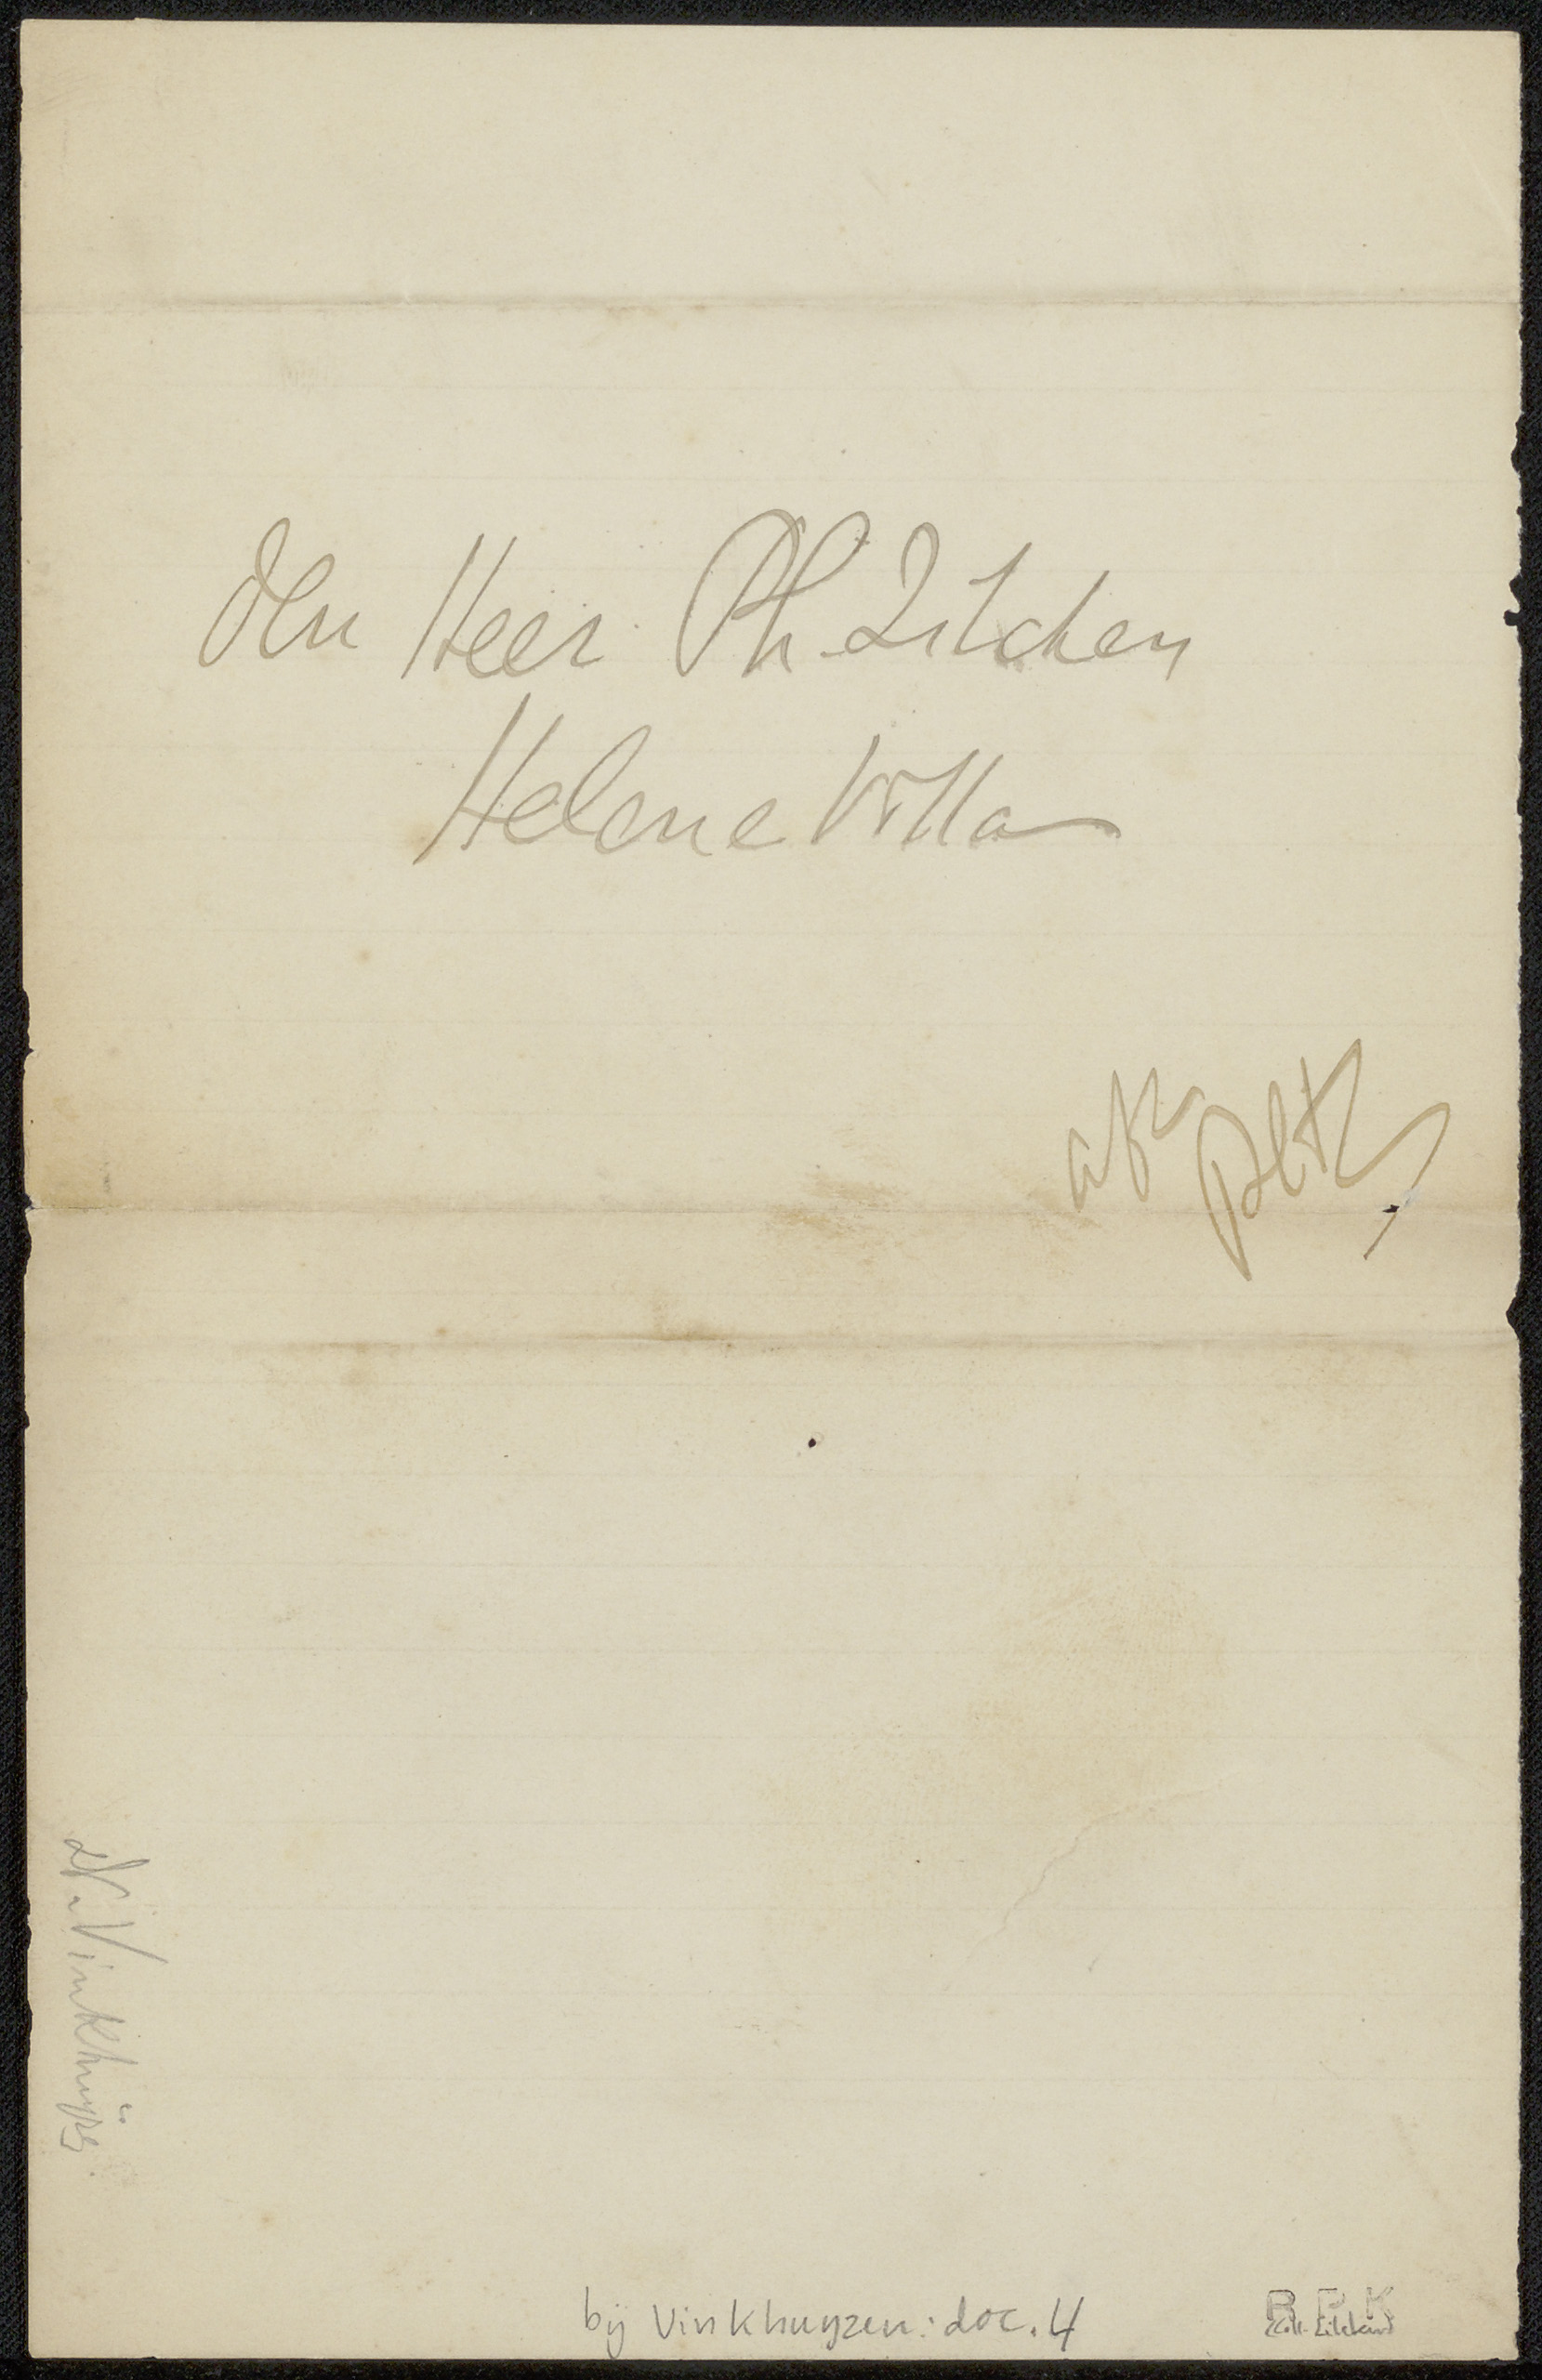 den Heer Ph. Zilcken
Helene Villa
dr. Vinkhuyze
bij Vinkhuyzen: doc. 4
R P K
Coll. Zilcken